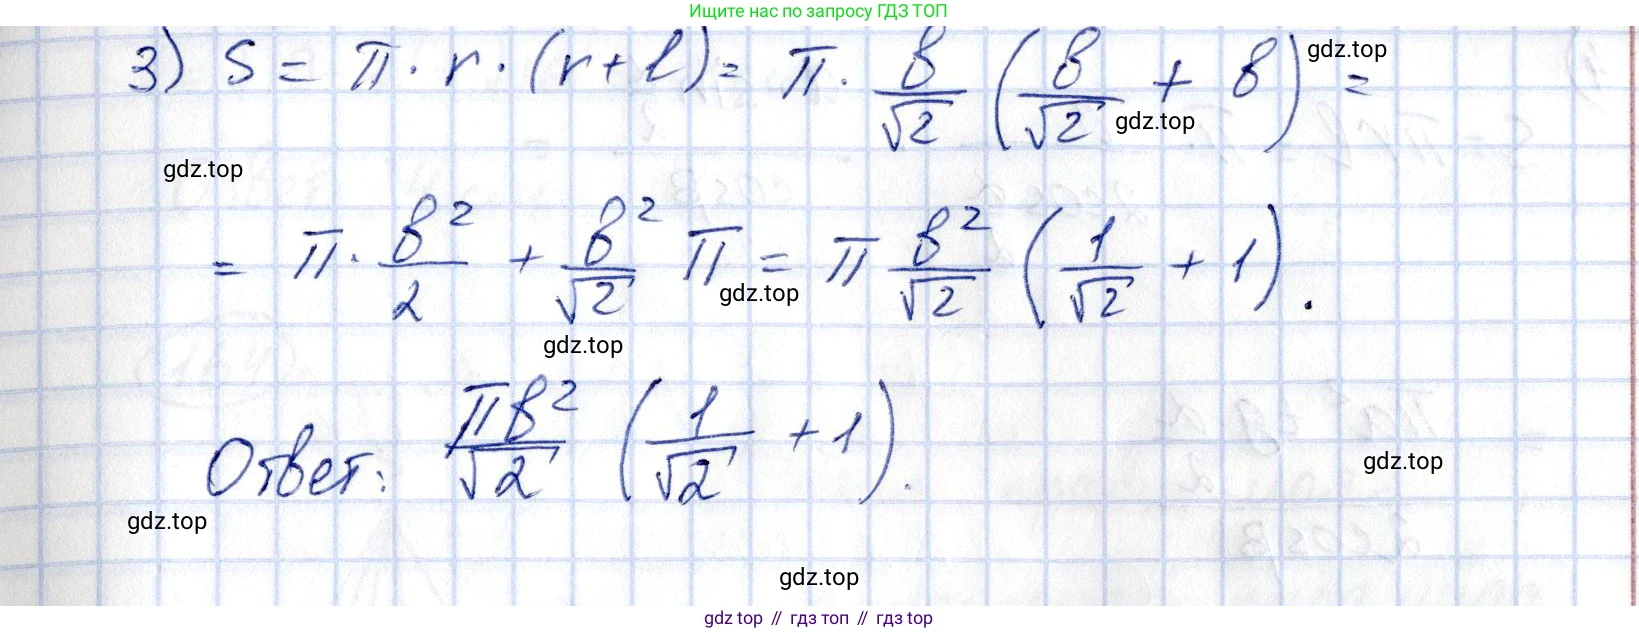 Ищите нас по запросу ГДЗ ТОП
3) S = π · r · (r + l) = π · в/√2 (в/√2 + в) =
gdz.top
gdz.top
gdz.top
= π · в²/2 + в²/√2 π = π в²/√2 (1/√2 + 1).
gdz.top
gdz.top
Ответ: πв²/√2 (1/√2 + 1).
gdz.top
gdz.top
gdz.top
gdz top // гдз топ // gdz top